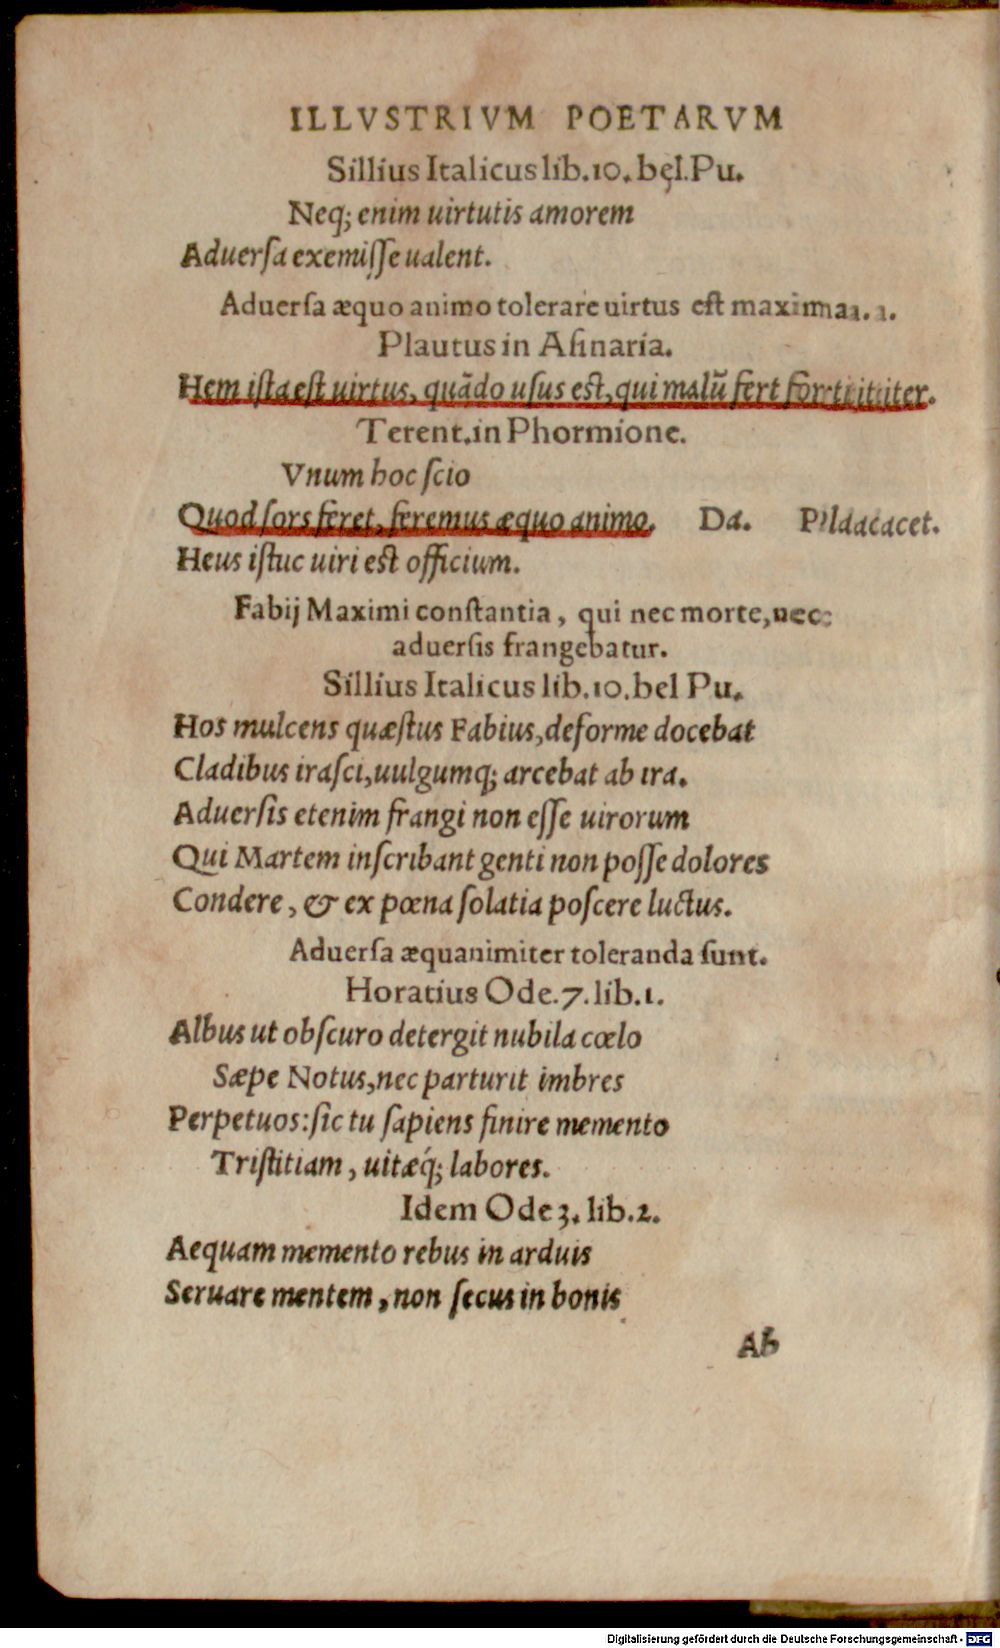 ILLVSTRIVM POETARVM
Sillius Italicus lib.10. bel.Pu.
Neq; enim uirtutis amorem
Aduerſa exemiſſe ualent.
Aduerſa æquo animo tolerare uirtus eſt maxima.
Plautus in Aſinaria.
Hem iſta eſt uirtus, quādo uſus eſt, qui malū fert fortiter.
Terent.in Phormione.
Vnum hoc ſcio
Quod ſors feret, feremus æquo animo. Da. Placet.
Heus iſtuc uiri eſt officium.
Fabij Maximi conſtantia, qui nec morte, nec
aduerſis frangebatur.
Sillius Italicus lib.10.bel Pu.
Hos mulcens quæſtus Fabius, deforme docebat
Cladibus iraſci, uulgumq; arcebat ab ira.
Aduerſis etenim frangi non eſſe uirorum
Qui Martem inſcribant genti non poſſe dolores
Condere, & ex pœna ſolatia poſcere luctus.
Aduerſa æquanimiter toleranda ſunt.
Horatius Ode.7.lib.1.
Albus ut obſcuro detergit nubila cœlo
Sæpe Notus, nec parturit imbres
Perpetuos: ſic tu ſapiens finire memento
Triſtitiam, uitæq́; labores.
Idem Ode 3. lib.2.
Aequam memento rebus in arduis
Seruare mentem, non ſecus in bonis
Ab
Digitalisierung gefördert durch die Deutsche Forschungsgemeinschaft - DFG